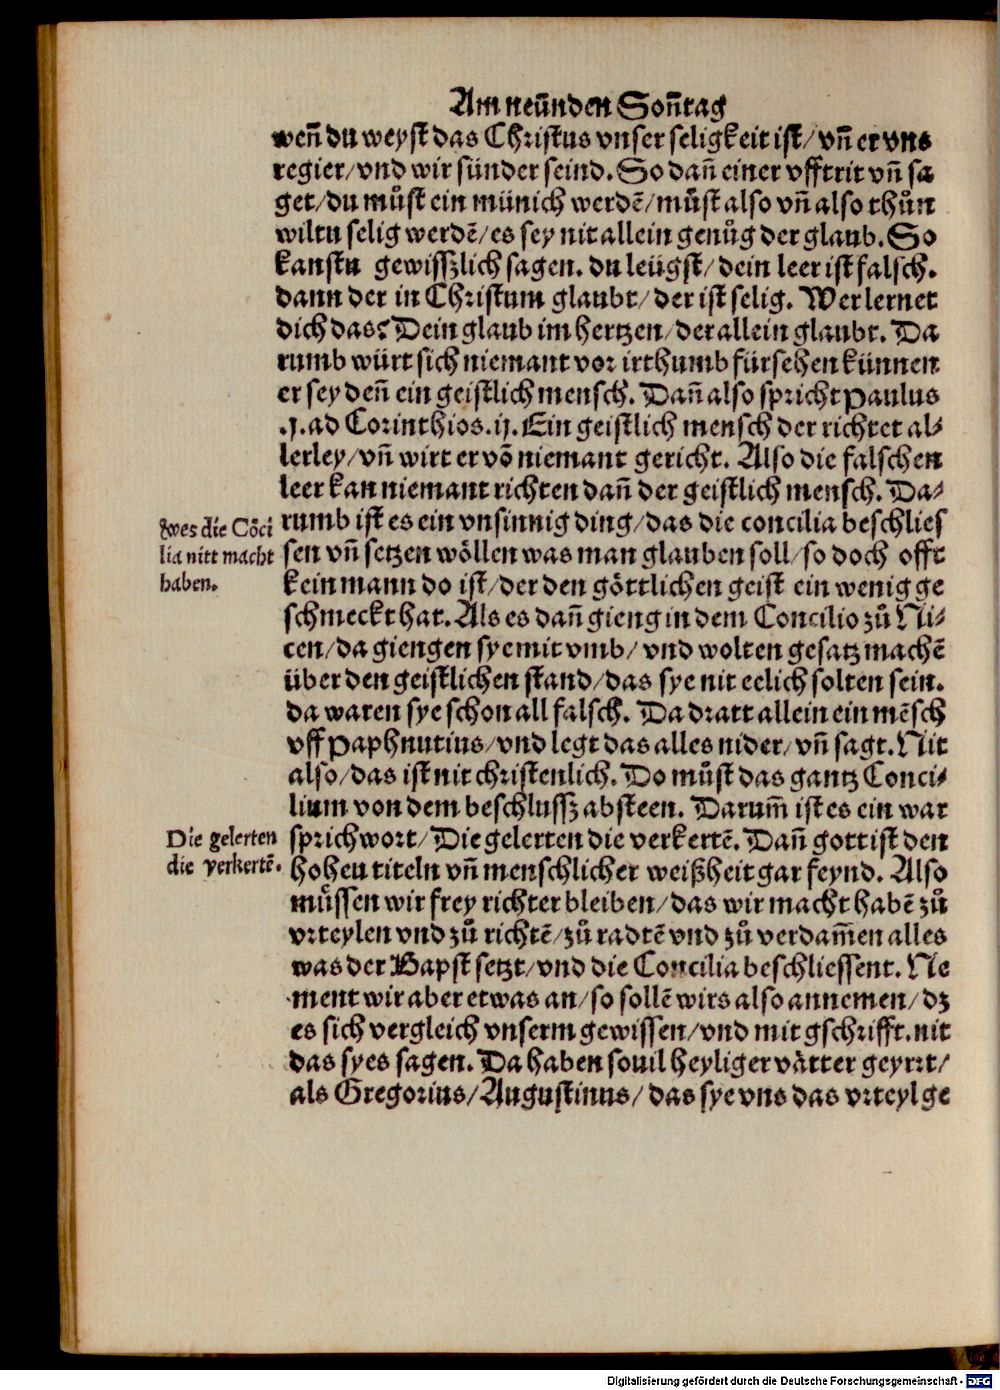 Am neün̄den Son̄tag
wen̄ du weyst das Christus vnser seligkeit ist/ vn̄ er vns
regier/ vnd wir sünder seind. So dan̄ einer vfftrit vn̄ sa
get/ du můst ein münich werdē/ můst also vn̄ also thůn
wiltu selig werdē/ es sey nit allein genůg der glaub. So
kanstu gewisszlich sagen. du leügst/ dein leer ist falsch.
dann der in Christum glaubt/ der ist selig. Wer lernet
dich das? Dein glaub im hertzen/ der allein glaubt. Da
rumb würt sich niemant vor irthumb fürsehen künnen
er sey den̄ ein geistlich mensch. Dan̄ also spricht Paulus
.j. ad Corinthios. ij. Ein geistlich mensch der richtet al⸗
lerley/ vn̄ wirt er vō niemant gericht. Also die falschen
leer kan niemant richten dan̄ der geistlich mensch. Da⸗
rumb ist es ein vnsinnig ding/ das die concilia beschlies
sen vn̄ setzen wöllen was man glauben soll/ so doch offt
kein mann do ist/ der den göttlichen geist ein wenig ge
schmeckt hat. Als es dan̄ gieng in dem Concilio zů Ni⸗
cen/ da giengen sye mit vmb/ vnd wolten gesatz machē
über den geistlichen stand/ das sye nit eelich solten sein.
da waren sye schon all falsch. Da dratt allein ein mēsch
vff Paphnutius/ vnd legt das alles nider/ vn̄ sagt. Nit
also/ das ist nit christenlich. Do můst das gantz Conci⸗
lium von dem beschlussz absteen. Darum̄ ist es ein war
sprichwort/ Die gelerten die verkertē. Dan̄ gott ist den
hohen titeln vn̄ menschlicher weißheit gar feynd. Also
müssen wir frey richter bleiben/ das wir macht habē zů
vrteylen vnd zů richtē/ zů radtē vnd zů verdam̄en alles
was der Bapst setzt/ vnd die Concilia beschliessent. Ne
ment wir aber etwas an/ so sollē wirs also annemen/ dz
es sich vergleich vnserm gewissen/ vnd mit gschrifft. nit
das syes sagen. Da haben souil heyliger vätter geyrrt/
als Gregorius/ Augustinus/ das sye vns das vrteyl ge
Wes die Cōci
lia nitt macht
haben.
Die gelerten
die verkertē.
Digitalisierung gefördert durch die Deutsche Forschungsgemeinschaft - DFG